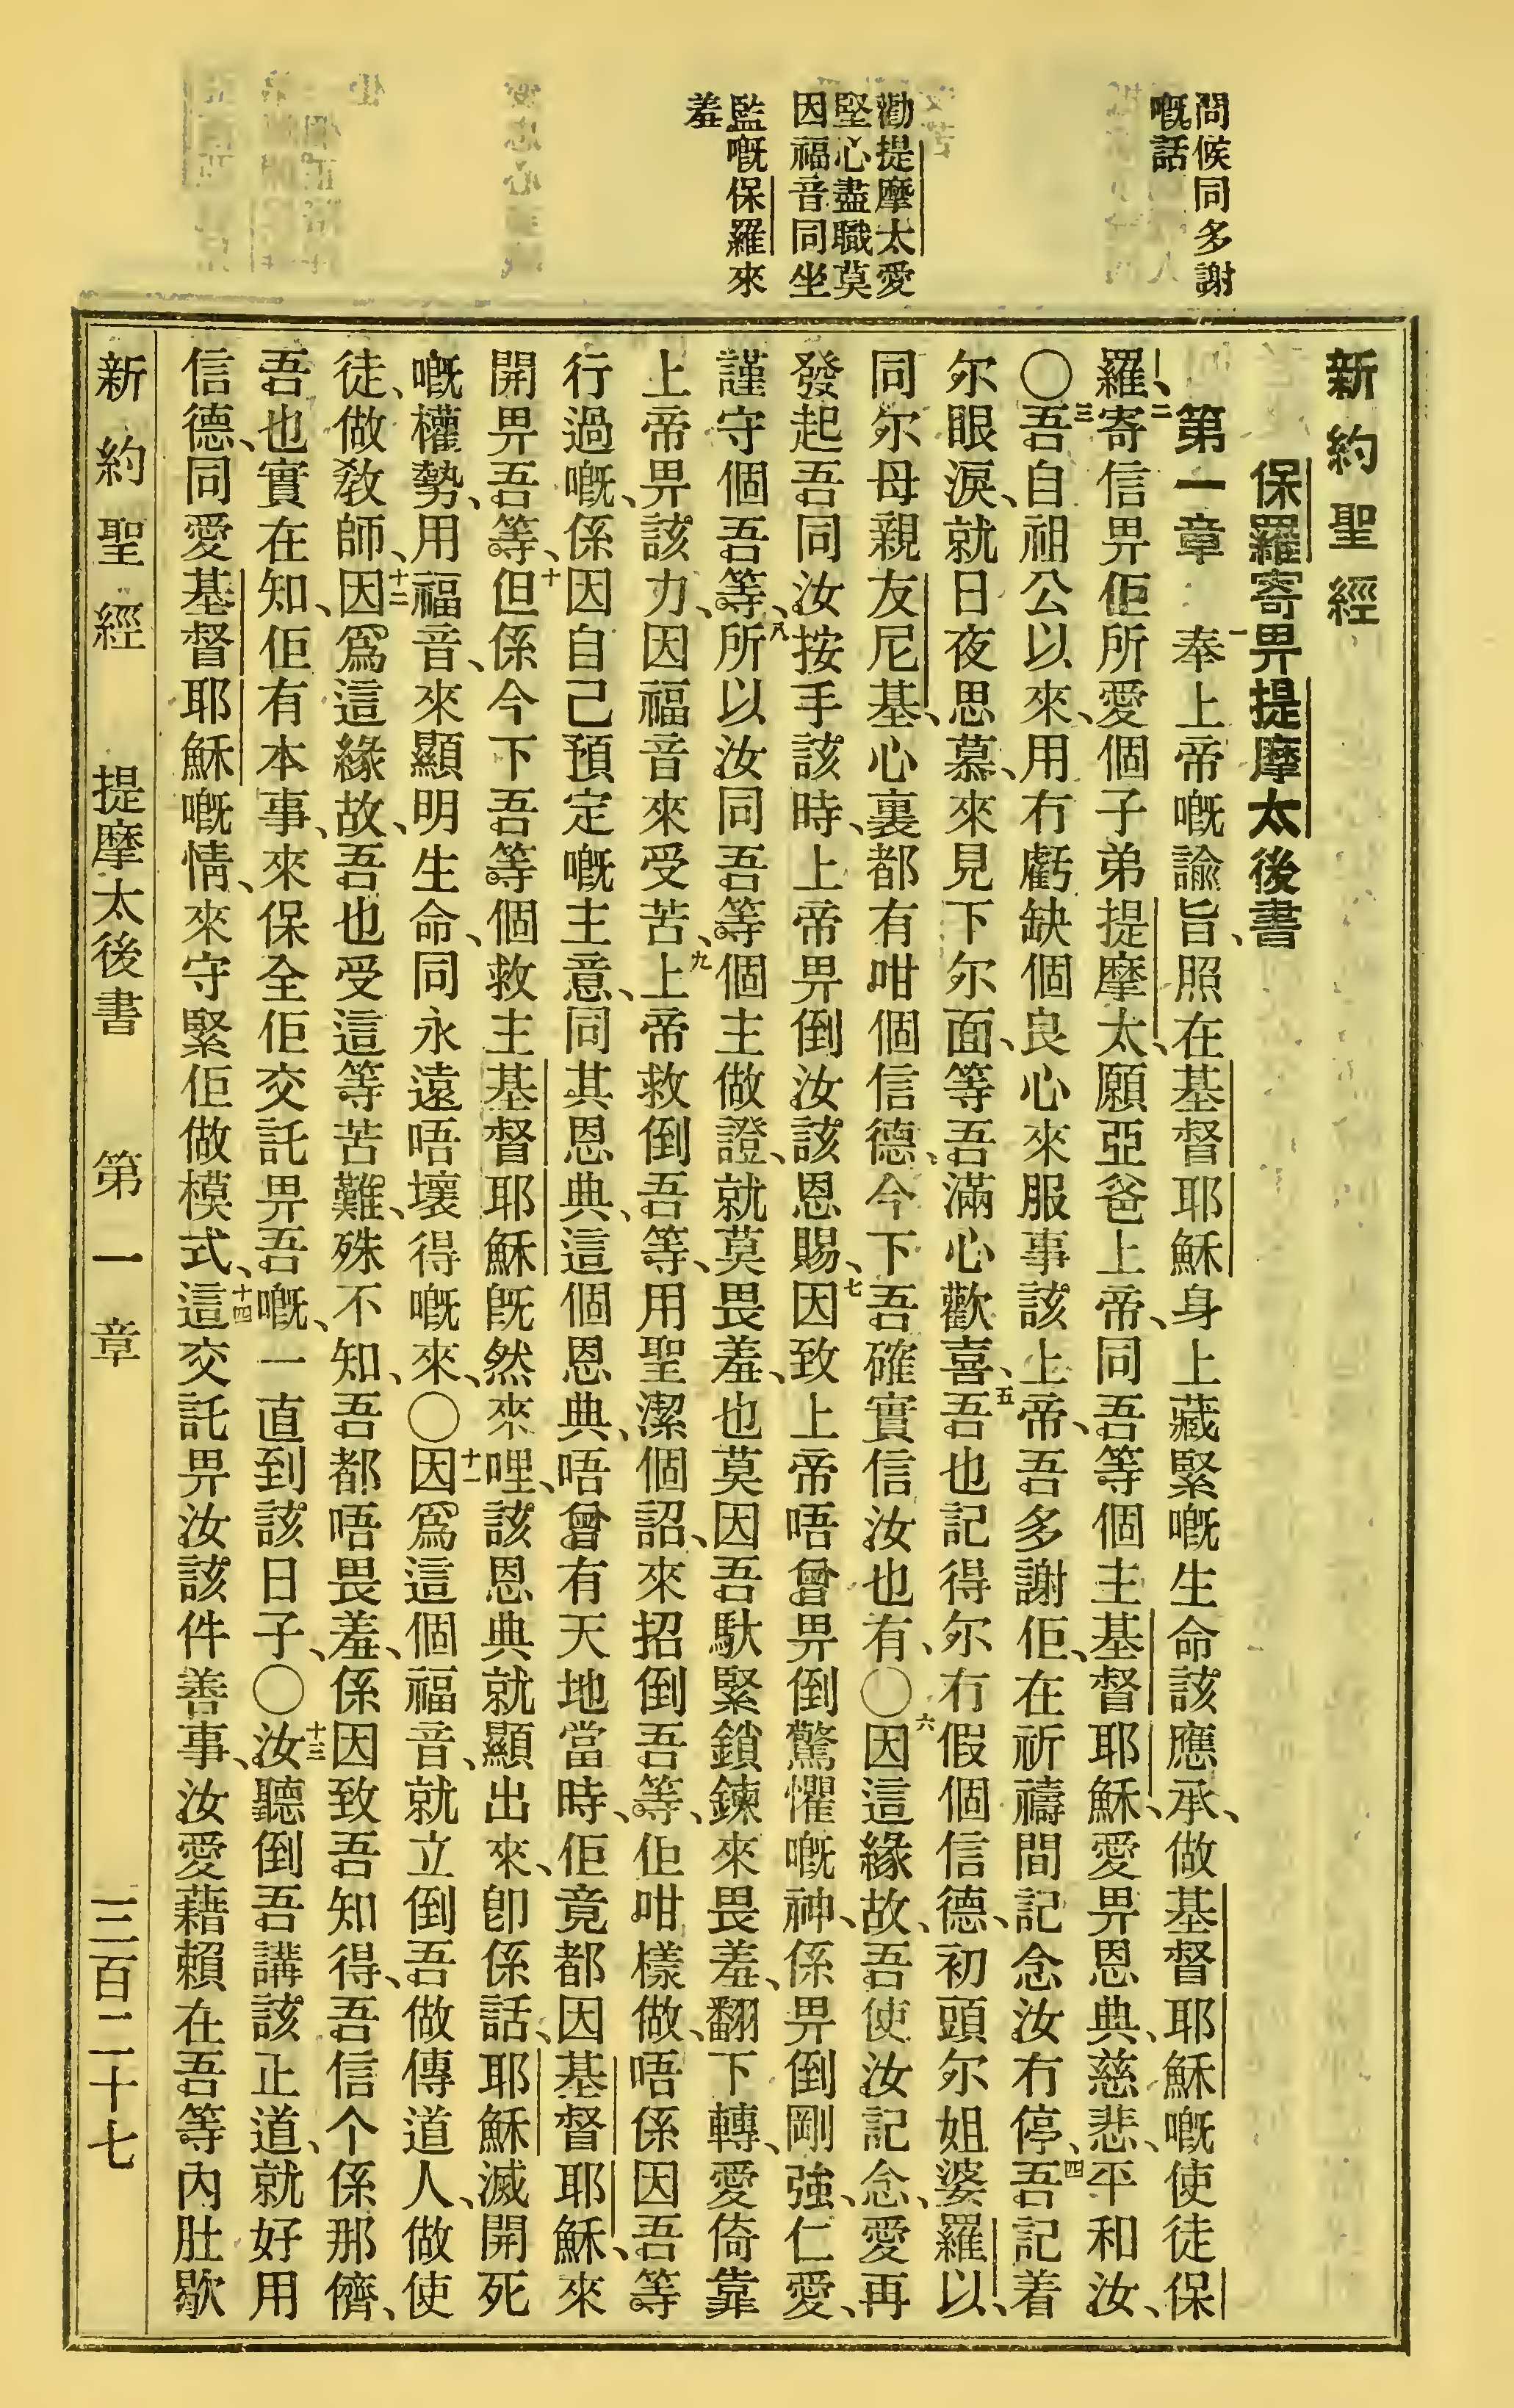 問候同多謝
嘅話
勸提摩太愛
堅心盡職莫
因福音同坐
監嘅保羅來
羞
新約聖經
保羅寄畀提摩太後書
第一章 一奉上帝嘅諭旨、照在基督耶穌身上藏緊嘅生命該應承、做基督耶穌嘅使徒保
羅、二寄信畀佢所愛個子弟提摩太、願亞爸上帝、同吾等個主基督耶穌、愛畀恩典、慈悲、平和汝、
〇三吾自祖公以來、用冇虧缺個良心來服事該上帝、吾多謝佢、在祈禱間記念汝冇停、四吾記着
尔眼淚、就日夜思慕、來見下尔面、等吾滿心歡喜、五吾也記得尔冇假個信德、初頭尔姐婆羅以、
同尔母親友尼基、心裏都有咁個信德、今下吾確實信汝也有、〇六因這緣故、吾使汝記念、愛再
發起吾同汝按手該時、上帝畀倒汝該恩賜、七因致上帝唔曾畀倒驚懼嘅神、係畀倒剛強、仁愛、
謹守個吾等、八所以汝同吾等個主做證、就莫畏羞、也莫因吾馱緊鎖鍊來畏羞、翻下轉、愛倚靠
上帝畀該力、因福音來受苦、九上帝救倒吾等、用聖潔個詔、來招倒吾等、佢咁樣做、唔係因吾等
行過嘅、係因自己預定嘅主意、同其恩典、這個恩典、唔曾有天地當時、佢竟都因基督耶穌、來
開畀吾等、十但係今下吾等個救主基督耶穌旣然來哩、該恩典就顯出來、卽係話、耶穌滅開死
嘅權勢、用福音、來顯明生命、同永遠唔壞得嘅來、〇十一因爲這個福音、就立倒吾做傳道人、做使
徒、做教師、十二因爲這緣故、吾也受這等苦難、殊不知、吾都唔畏羞、係因致吾知得、吾信个係那儕、
吾也實在知、佢有本事、來保全佢交託畀吾嘅、一直到該日子、〇十三汝聽倒吾講該正道、就好用
信德、同愛基督耶穌嘅情、來守緊佢做模式、十四這交託畀汝該件善事、汝愛藉賴在吾等內肚歇
新約聖經 提摩太後書 第一章 三百二十七